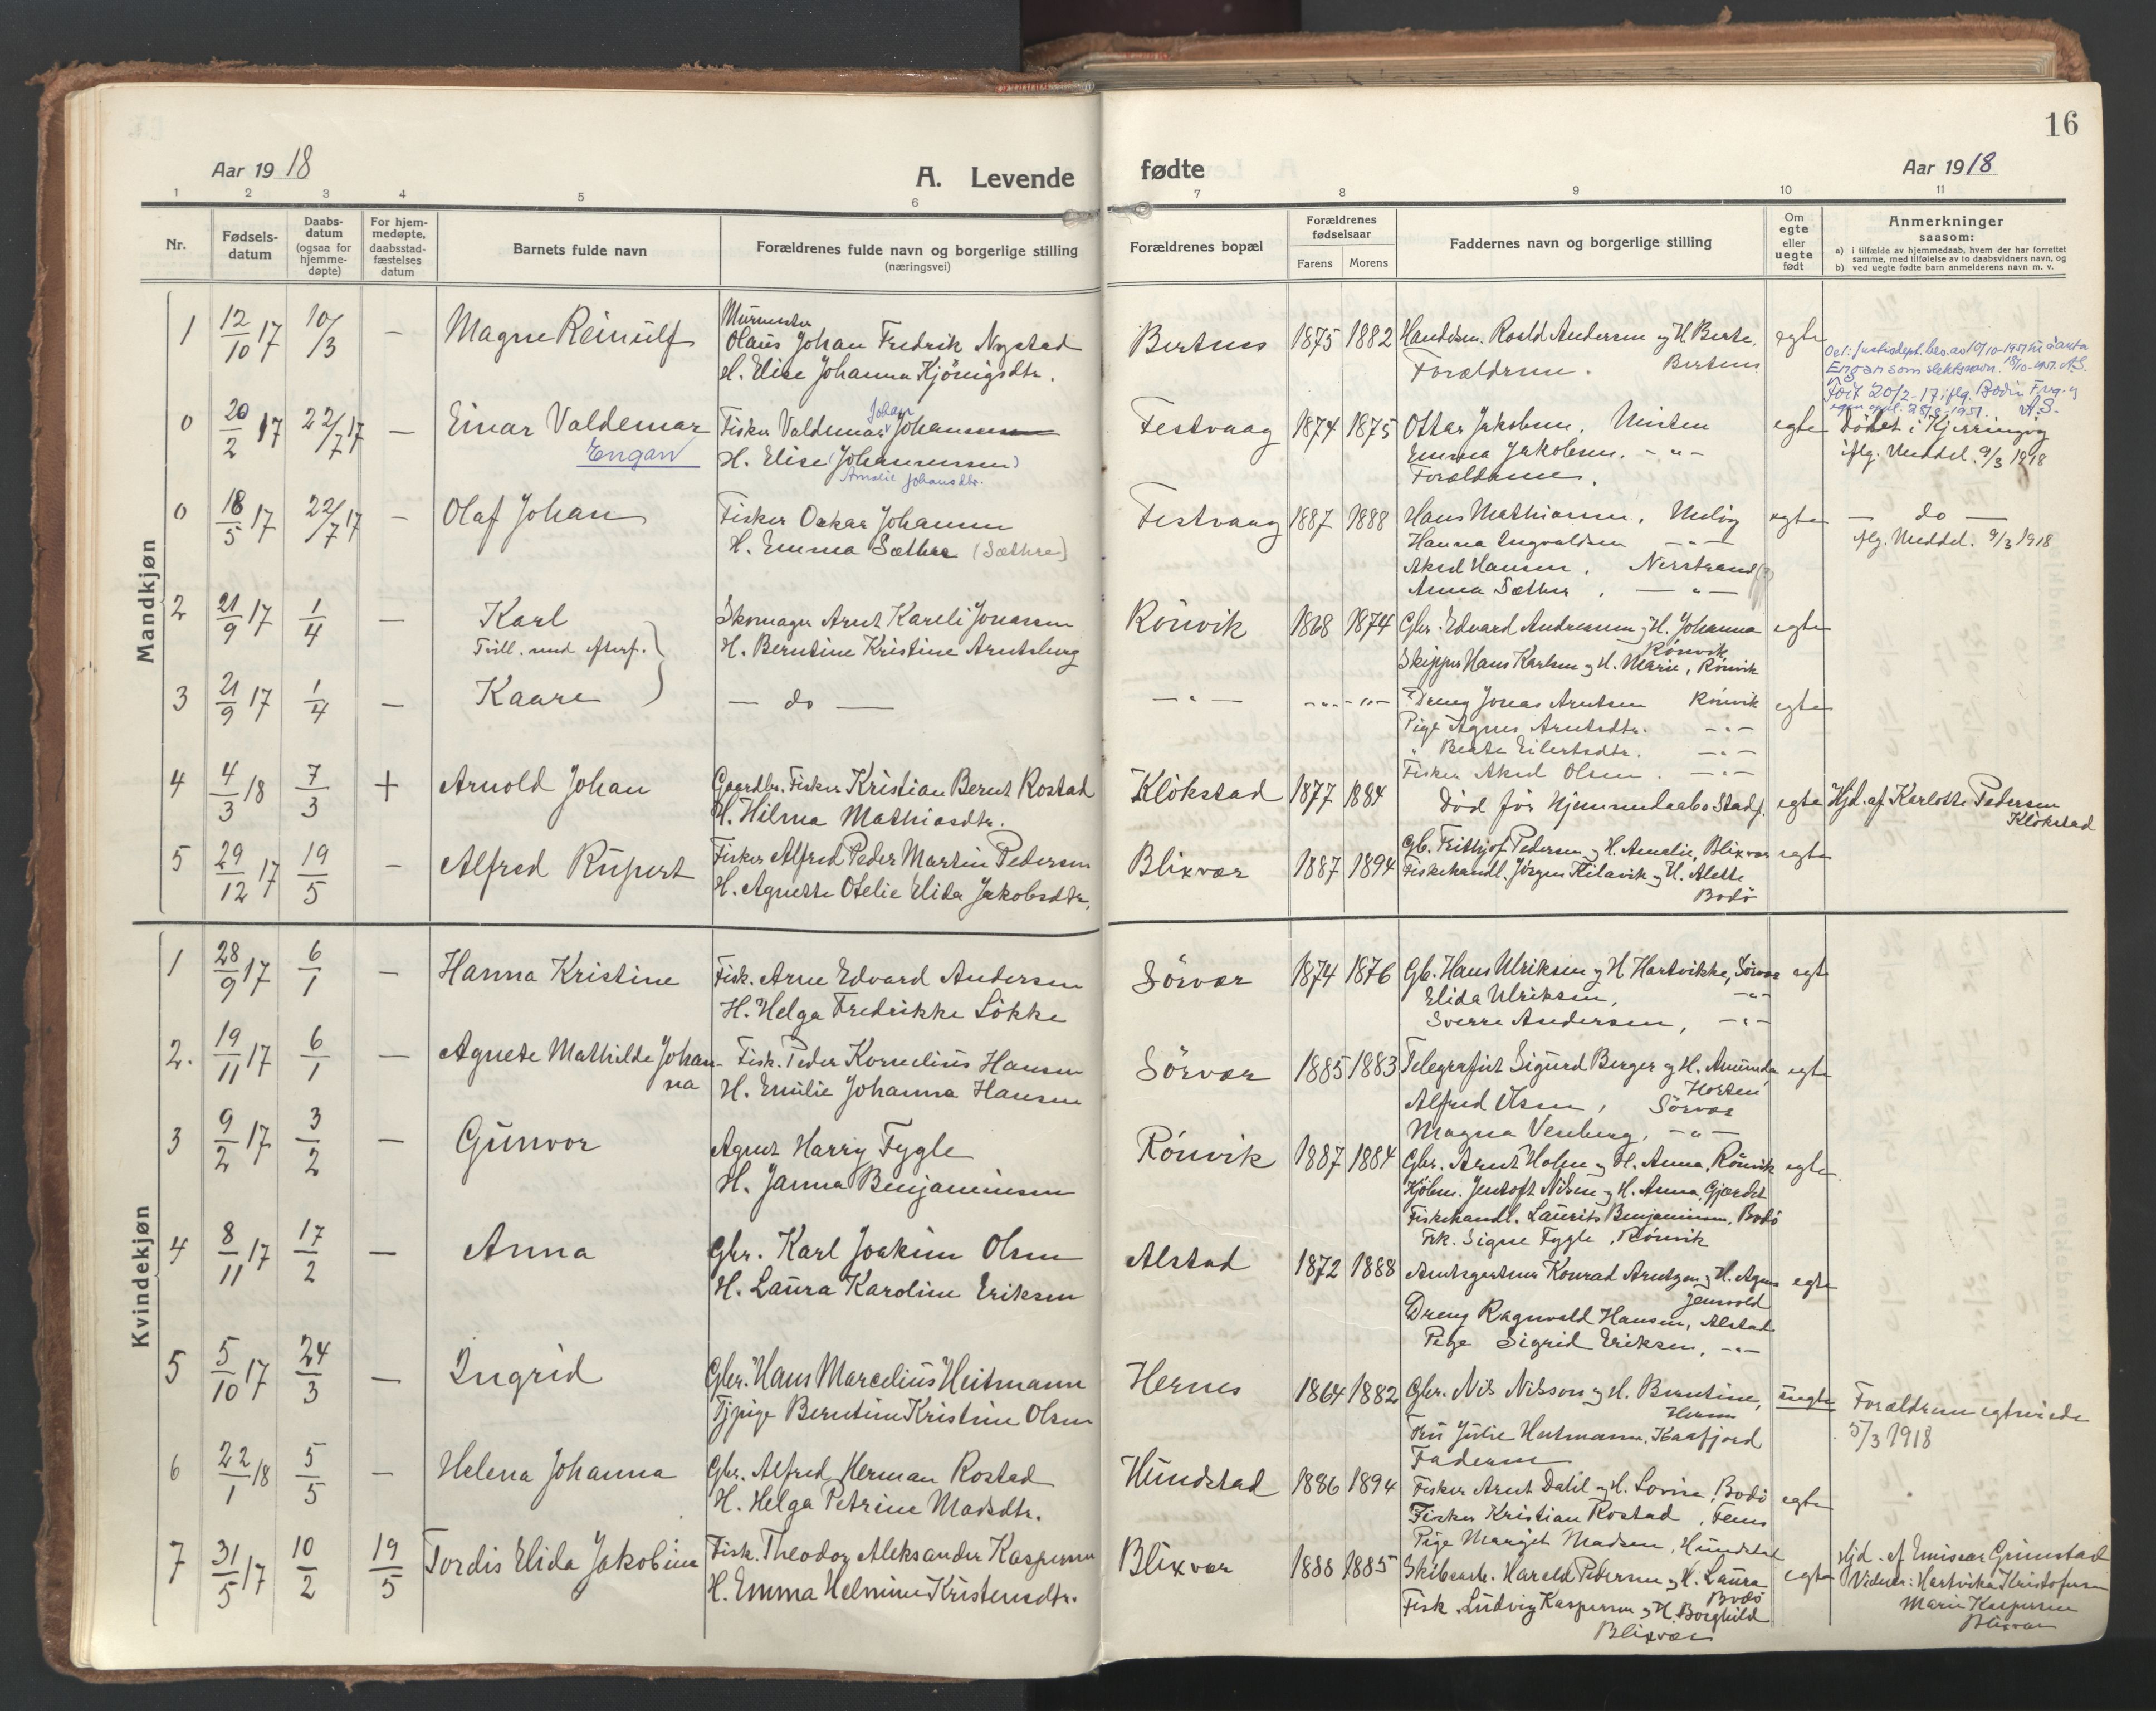 16
Aar 1918
A. Levende
fødte
Aar 1918
1 2 3 4 5 6 7 8 9 10 11
Nr.
Fødsels-
datum
Daabs-
datum
(ogsaa for
hjemme-
døpte)
For hjem-
medøpte,
daabsstad-
fæstelses
datum
Barnets fulde navn
Forældrenes fulde navn og borgerlige stilling
(næringsvei)
Forældrenes bopæl
Forældrenes
fødselsaar
Farens Morens
Faddernes navn og borgerlige stilling
Om
egte
eller
uegte
født
Anmerkninger
saasom:
a) i tilfælde av hjemmedaab, hvem der har forrettet
samme, med tilføielse av to daabsvidners navn, og
b) ved uegte fødte barn anmelderens navn m. v.
Mandkjøn
1 12/10 17 10/3 — Magne Reinulf
Murmester
Olaus Johan Fredrik Nystad
H. Elise Johanna Kjönigsdtr.
Bertnes 1875 1882
Handelsm. Roald Andersen og H. Berte,
Bertnes
Forældrene.
egte
0 20/2 17 22/7 17 — Einar Valdemar
Engan
Fisker Valdemar Johan Johansen
H. Elise (Johannessen)
Amalie Johansdtr.
Festvaag 1874 1875
Ottar Jakobsen, Misten
Emma Jakobsen. - " -
Forældrene.
egte
Engan som slektsnavn. 18/10-1951. A.S.
født 20/2-17 iflg. Bodin
A.S.
Döbt i Kjerringöy
iflg. Meddel. 9/3 1918
0 18/5 17 22/7 17 — Olaf Johan
Fisker Oskar Johansen
H. Emma Sæther (Sæthre)
Festvaag 1887 1888
Hans Mathiassen,
Hanna Ingvaldsen - " -
Aksel Hansen, Nerstrand
Anna Sæther, — " —
egte
— do —
iflg. Meddel. 9/3 1918
2 21/9 17 1/4 — Karl
Tvill. med efterf.
Skomager Arnt Kareli Jonassen
H. Berntine Kristine Arntsberg
Rönvik 1868 1874
Gbr. Edvard Andreassen og H. Johanna
Rönvik
Skipper Hans Karlsen og H. Marie, Rönvik
egte
3 21/9 17 1/4 — Kaare
— do —
— " — - " - - " -
Dreng Jonas Arntsen Rönvik
Pige Agnes Arntsdtr. - " -
" Berte Eilertsdtr. - " -
Fisker Aksel Olsen. - " -
egte
4 4/3 18 7/3 + Arnold Johan
Gaardbr. Fisker Kristian Bernt Rostad
H. Hilma Mathiasdtr.
Klökstad 1877 1884
Död før Hjemmedaabs Stadf.
egte
Hjd. af Karlotte Pedersen
Klökstad
5 29/12 17 19/5 — Alfred Rupert
Fisker Alfred Peder Martin Pedersen
H. Agnethe Otelie Elida Jakobsdtr.
Blixvær 1887 1894
Gb. Frithjof Pedersen og H. Amalie, Blixvær
Fiskehandl. Jörgen Kilavik og H. Alette
Bodö
egte
Kvindekjøn
1 28/9 17 6/1 — Hanna Kristine
Fisk. Arne Edvard Andersen
H. Helga Fredrikke Lökke
Sörvær 1874 1876
Gb. Hans Ulriksen og H. Hartvikke, Sörvær
Elida Ulriksen, - " -
Sverre Andersen, - " -
egte
2. 19/11 17 6/1 — Agnete Mathilde Johan-
na
Fisk. Peder Kornelius Hansen
H. Emilie Johanna Hansen
Sörvær 1885 1883
Telegrafist Sigurd Berger og H. Amunda
Horten
Alfred Olsen, Sörvær
Magna Venberg, - " -
egte
3 9/2 17 3/2 — Gunvor
Agent Harry Fygle
H. Janna Benjaminsen
Rönvik 1887 1884
Gbr. Arnt Holm og H. Anna, Rönvik
Kjöbm. Jentoft Nilsen og H. Anna, Gjærdet
Fiskehandl. Laurits Benjaminsen, Bodö
Frk. Signe Fygle, Rönvik
egte
4 8/11 17 17/2 — Anna
Gbr. Karl Joakim Olsen
H. Laura Karoline Eriksen
Alstad 1872 1888
Amtsgartner Konrad Arntzen og H. Agnes
Jensvold
Dreng Ragnvald Hansen, Alstad
Pige Sigrid Eriksen, - " -
egte
5 5/10 17 24/3 — Ingrid
Gbr. Hans Marcelius Heitmann
Tjpige Berntine Kristine Olsen
Hernes 1864 1882
Gbr. Nils Nilsson og H. Berntine,
Hernes
Fru Julie Heitmann, Kaafjord
Faderen
uegte
Forældrene egteviede
5/3 1918
6 22/1 18 5/5 — Helena Johanna
Gbr. Alfred Herman Rostad
H. Helga Petrine Madsdtr.
Hundstad 1886 1894
Fisker Arnt Dahl og H. Lovise, Bodö
Fisker Kristian Rostad, Fenes
Pige Margit Madsen, Hundstad
egte
7 31/5 17 10/2 19/5 Tordis Elida Jakobine
Fisk. Theodor Aleksander Kaspersen
H. Emma Helmine Kristensdtr.
Blixvær 1888 1885
Skibsarb. Harald Pedersen og H. Laura
Bodö
Fisk. Ludvig Kaspersen og H. Borghild
Blixvær
egte
Hjd. af Emissær Grimstad
Vidner: Hartvika Kristofersen
Marie Kaspersen
Blixvær